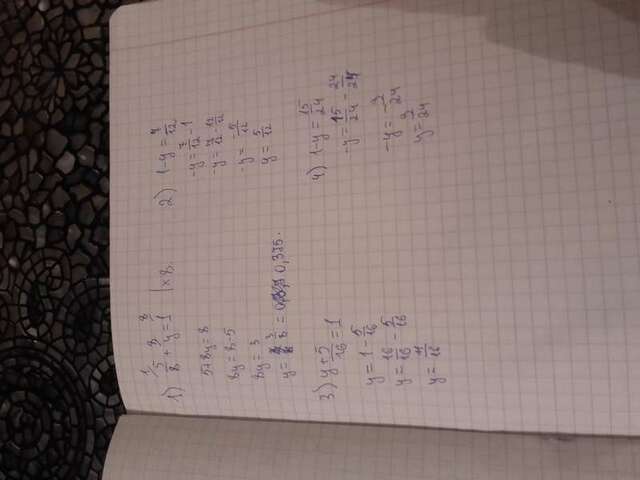 1) 5/8 + y = 1 | x 8.
5+8y=8
8y = 8-5
8y = 3
y = 3/8 = 0,375.
2) 1-y = 7/12
-y = 7/12 - 1
-y = 7/12 - 12/12
-y = -5/12
y = 5/12
3) y + 5/16 = 1
y = 1 - 5/16
y = 16/16 - 5/16
y = 11/16
4) 1-y = 15/24
-y = 15/24 - 24/24
-y = -9/24
y = 9/24